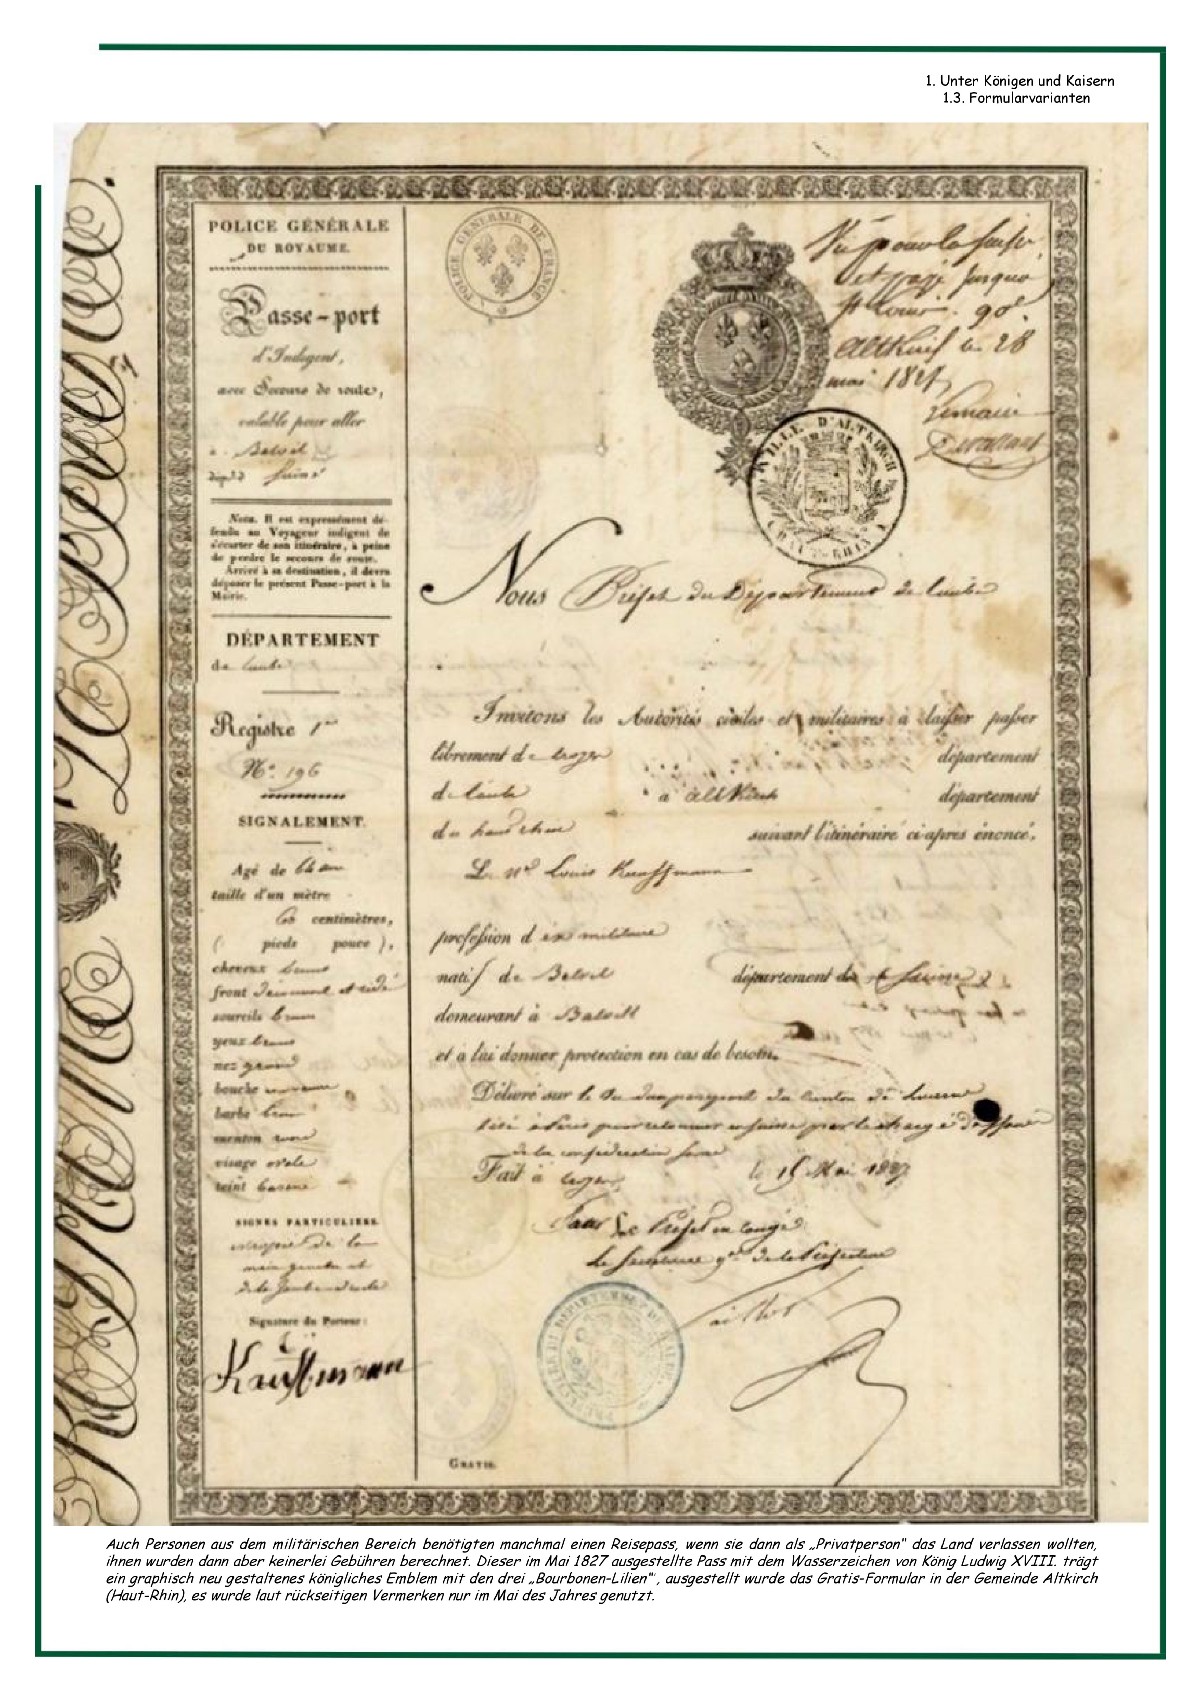 1. Unter Königen und Kaisern
1.3. Formularvarianten
POLICE GÉNÉRALE
DU ROYAUME.
Passe-port
d'Indigent,
avec Secours de route,
valable pour aller
à Balsil
dép.t d
Nota. Il est expressément dé-
fendu au Voyageur indigent de
s'écarter de son itinéraire, à peine
de perdre le secours de route.
Arrivé à sa destination, il devra
déposer le présent Passe-port à la
Mairie.
DÉPARTEMENT
de l'aube
Registre 1er
N.o 196
SIGNALEMENT.
Agé de 64 ans
taille d'un mètre
60 centimètres,
( pieds pouce ),
cheveux bruns
front et ridé
sourcils bruns
yeux bruns
nez grand
bouche moyenne
barbe brune
menton rond
visage ovale
teint basané
SIGNES PARTICULIERS.
estropié de la
main gauche et
de la Jambe droite
Signature du Porteur:
Kauffmann
POLICE GÉNÉRALE DE FRANCE
Vu pour
et payé jusqua
St Louis. 90c
Altkirch le 28
mai 1827
VILLE D'ALTKIRCH
(HAUT-RHIN)
Nous Préfet du Département de l'aube
Invitons les Autorités civiles et militaires à laisser passer
librement de troyes département
de l'aube à altkirch département
du haut rhin suivant l'itinéraire ci-après énoncé.
Le Nd Louis Kauffmann
profession d ex militaire
natif de Balsil département de
demeurant à Balsill
et à lui donner protection en cas de besoin.
Délivré sur le Vu d'un passeport du Canton de
à Paris pour retourner en suisse par le chargé d'affaires
de la confédération suisse
Fait à troyes le 15 Mai 1827
Pour le Préfet en congé
Le Secrétaire gal de la Préfecture
PRÉFECTURE DU DÉPARTEMENT DE L'AUBE
GRATIS.
Auch Personen aus dem militärischen Bereich benötigten manchmal einen Reisepass, wenn sie dann als „Privatperson“ das Land verlassen wollten,
ihnen wurden dann aber keinerlei Gebühren berechnet. Dieser im Mai 1827 ausgestellte Pass mit dem Wasserzeichen von König Ludwig XVIII. trägt
ein graphisch neu gestaltenes königliches Emblem mit den drei „Bourbonen-Lilien“, ausgestellt wurde das Gratis-Formular in der Gemeinde Altkirch
(Haut-Rhin), es wurde laut rückseitigen Vermerken nur im Mai des Jahres genutzt.